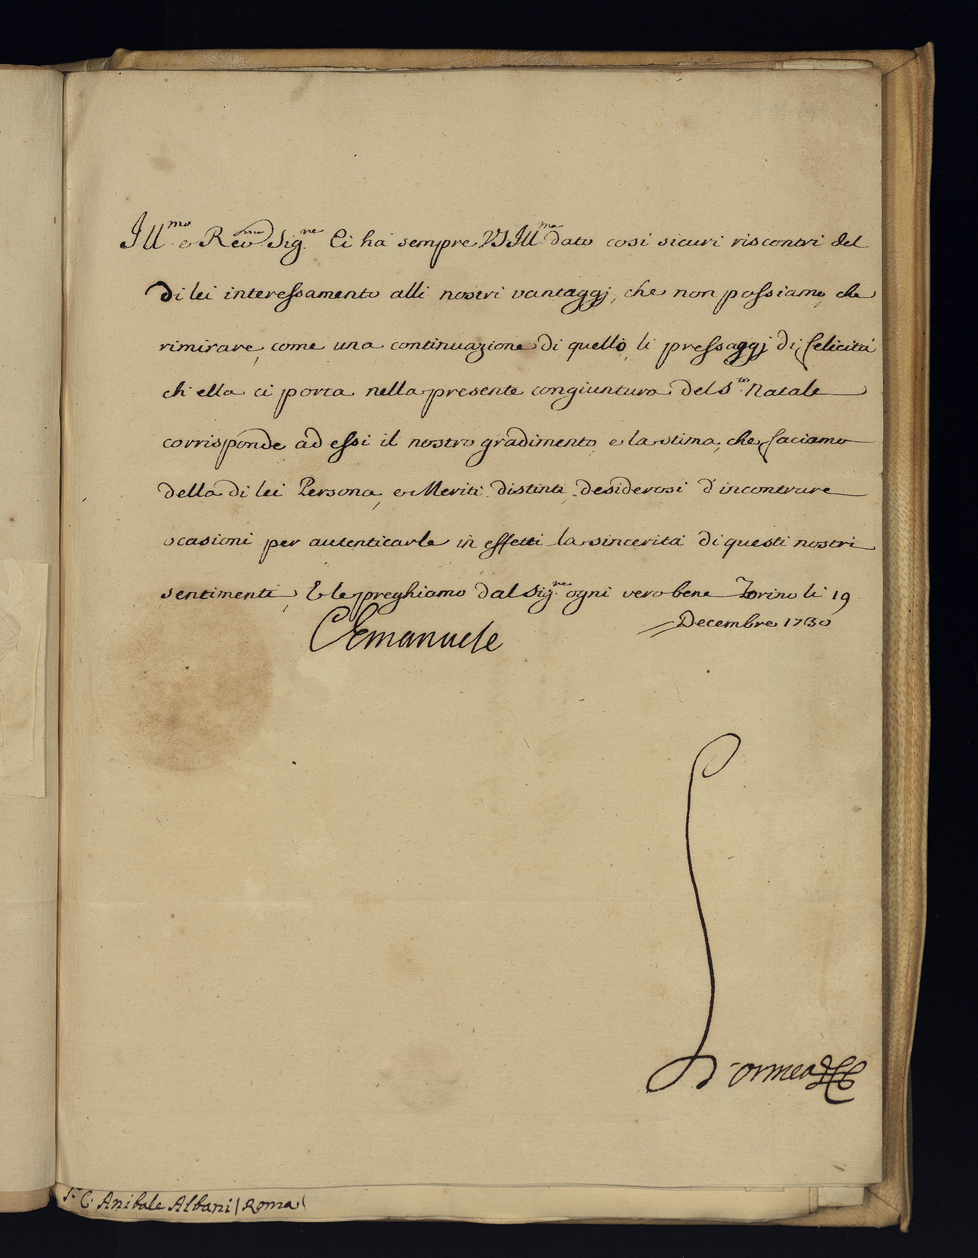 Ill.mo e Rev.mo Sig.re Ci há sempre VS Ill.ma dato così sicuri riscontri del
di lei interessamento alli nostri vantaggj, che non possiamo, che
rimirare, come una continuazione di quello, li pressaggj di felicitá
ch'ella ci porta nella presente congiuntura del S.to Natale
corrisponde ad essi il nostro gradimento, e la stima, che facciamo
della di lei Persona, e Meriti distinti desiderosi d'incontrare
ocasioni per autenticarle in effetti la sincerità di questi nostri
sentimenti, E le preghiamo dal Sig.re ogni vero bene Torino li 19
Decembre 1730
CEmanuele
D'ormea
S. C. Anibale Albani (Roma)